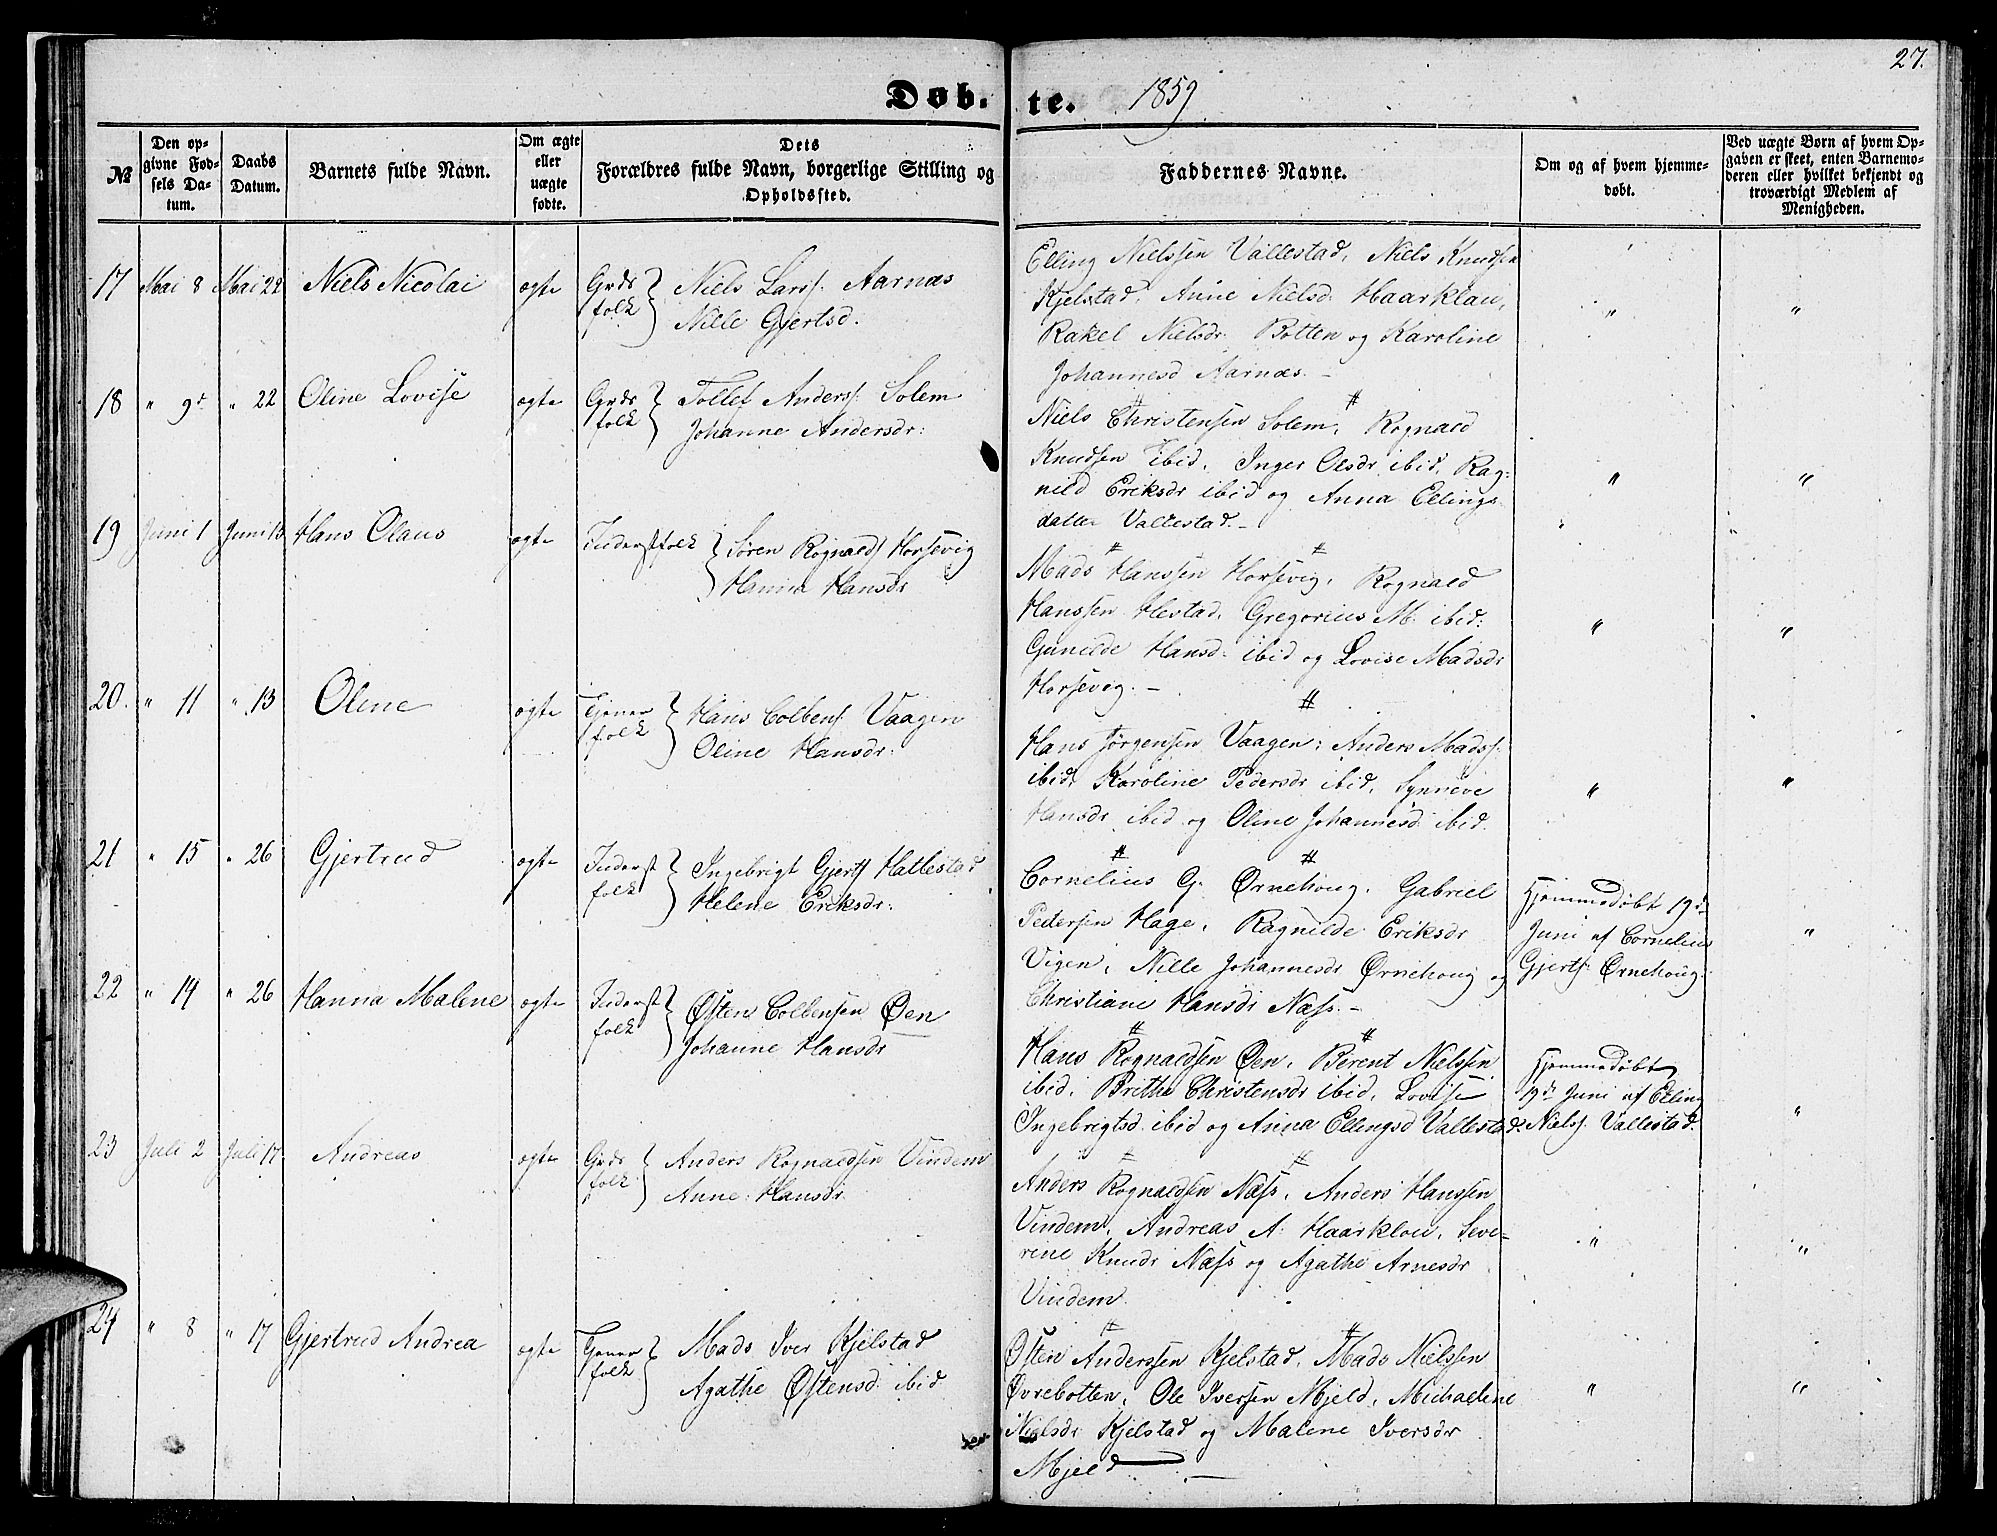 27.
Døb- te. 1859
№
Den op-
givne Fød-
sels Da-
tum.
Daabs
Datum.
Barnets fulde Navn.
Om ægte
eller
uægte
fødte.
Dets
Forældres fulde Navn, borgerlige Stilling og
Opholdssted.
Faddernes Navne.
Om og af hvem hjemme-
døbt.
Ved uægte Børn af hvem Op-
gaven er skeet, enten Barnemo-
deren eller hvilket bekjendt og
troværdigt Medlem af
Menigheden.
17 Mai 8 Mai 22 Niels Nicolai ægte Grds folk } Niels Larss. Aarnæs
Nille Gjertsd.
Elling Nielssen Vallestad, Niels Knudsen
Kjelstad, Anne Nielsd. Haarklau,
Rakel Nielsdr Botten og Karoline
Johannesd Aarnæs. - " "
18 " 9de " 22 Oline Lovise ægte Grds folk } Tollef Anderss. Solem
Johanne Andersdr.
Niels Christensen Solem, Rognald
Knudsen ibid, Inger Olsdr ibid, Rag-
nild Eriksdr ibid og Anna Ellings
datter Vallestad. - " "
19 Juni 1 Juni 13 Hans Olaus ægte Inderstfolk } Søren Rognalds Horsevig
Hanna Hansdr
Mads Hanssen Horsevig, Rognald
Hanssen Hestad, Gregorius M. ibid.
Gunilde Hansd. ibid og Lovise Madsdr
Horsevig. - " "
20. " 11 " 13 Oline ægte Tjener folk } Hans Colbens. Vaagen
Oline Hansdr.
Hans Jørgensen Vaagen, Anders Madss.
ibid, Karoline Pedersdr ibid, Synneve
Hansdr ibid og Oline Johannesd ibid. " "
21 " 15 " 26 Gjertrud ægte Inderst folk } Ingebrigt Gjerts Hattestad
Helene Eriksdr.
Cornelius G. Ørnehoug, Gabriel
Pedersen Hage, Ragnilde Eriksdr
Vigen, Nille Johannesdr Ørnehoug og
Christiane Hansdr Næss. -
Hjemmedøbt 19de
Juni af Cornelius
Gjerts. Ørnehoug. "
22 " 14 " 26 Hanna Malene ægte Inderst folk } Østen Colbensen Øen
Johanne Hansdr
Hans Rognaldsen Øen, Berent Nielssen
ibid, Brithe Christensdr ibid, Lovise
Ingebrigtsd ibid og Anna Ellingsd Vallestad.
Hjemmedøbt
19de Juni af Elling
Nielss. Vallestad. "
23 Juli 2 Juli 17 Andreas ægte Grds folk } Anders Rognaldsen Vindem
Anne Hansdr
Anders Rognaldsen Næss, Anders Hanssen
Vindem, Andreas A. Haarklau, Seve-
rine Knudr Næss og Agathe Arnesdr
Vindem. " "
24 " 8 " 17 Gjertrud Andrea ægte Tjener folk } Mads Iver Kjelstad
Agathe Østensd. ibid
Østen Anderssen Kjelstad, Mads Nielssen
Øvrebotten, Ole Iversen Mjeld, Michaeline
Nielsdr Kjelstad og Malene Iversdr
Mjeld - " "